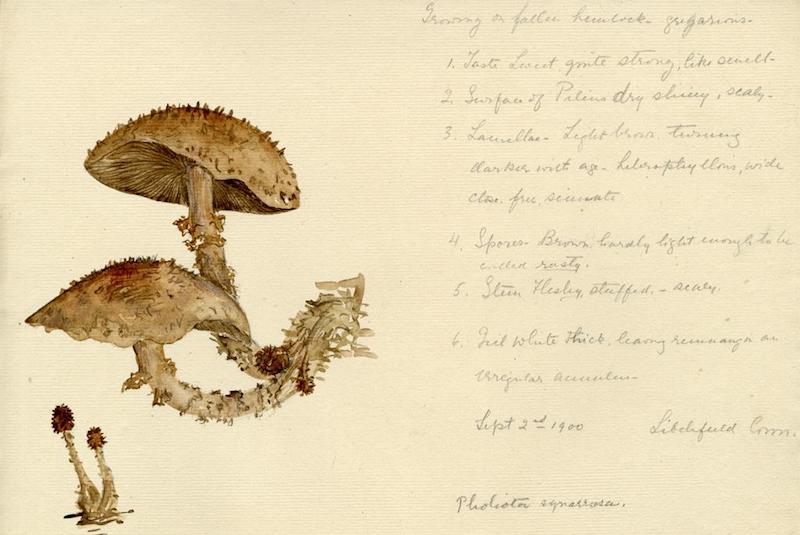 Growing on fallen hemlock - gregarious -
1. Taste Sweet quite strong, like smell -
2. Surface of Pileus dry shiny, scaly -
3. Lamellae - Light brown turning
darker with age - heterophyllous, wide
close. free, sinuate
4. Spores - Brown, hardly light enough to be
called rusty.
5. Stem Fleshy, stuffed. - scaly.
6. Veil White thick, leaving remnang in an
irregular annulus -
Sept 2nd 1900 Litchfield Conn.
Pholiota squarrosa.